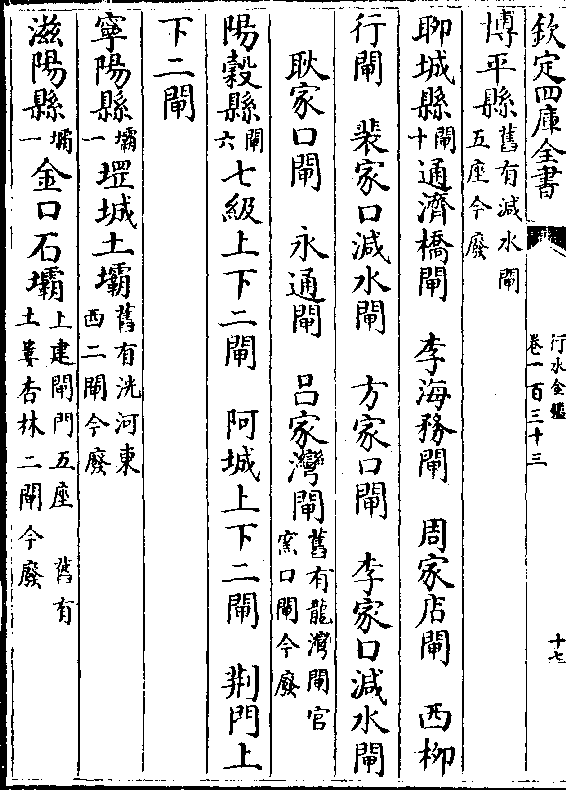 欽定四庫全書
行水金鑑
卷一百三十三
十七
博平縣舊有減水閘五座今廢
聊城縣閘十通濟橋閘 李海務閘 周家店閘 西柳
行閘 裴家口減水閘 方家口閘 李家口減水閘
耿家口閘 永通閘 呂家灣閘舊有龍灣閘官窯口閘今廢
陽穀縣閘六七級上下二閘 阿城上下二閘 荆門上
下二閘
寧陽縣壩一堽城土壩舊有洸河東西二閘今廢
滋陽縣壩一金口石壩上建閘門五座 舊有土婁杏林二閘今廢